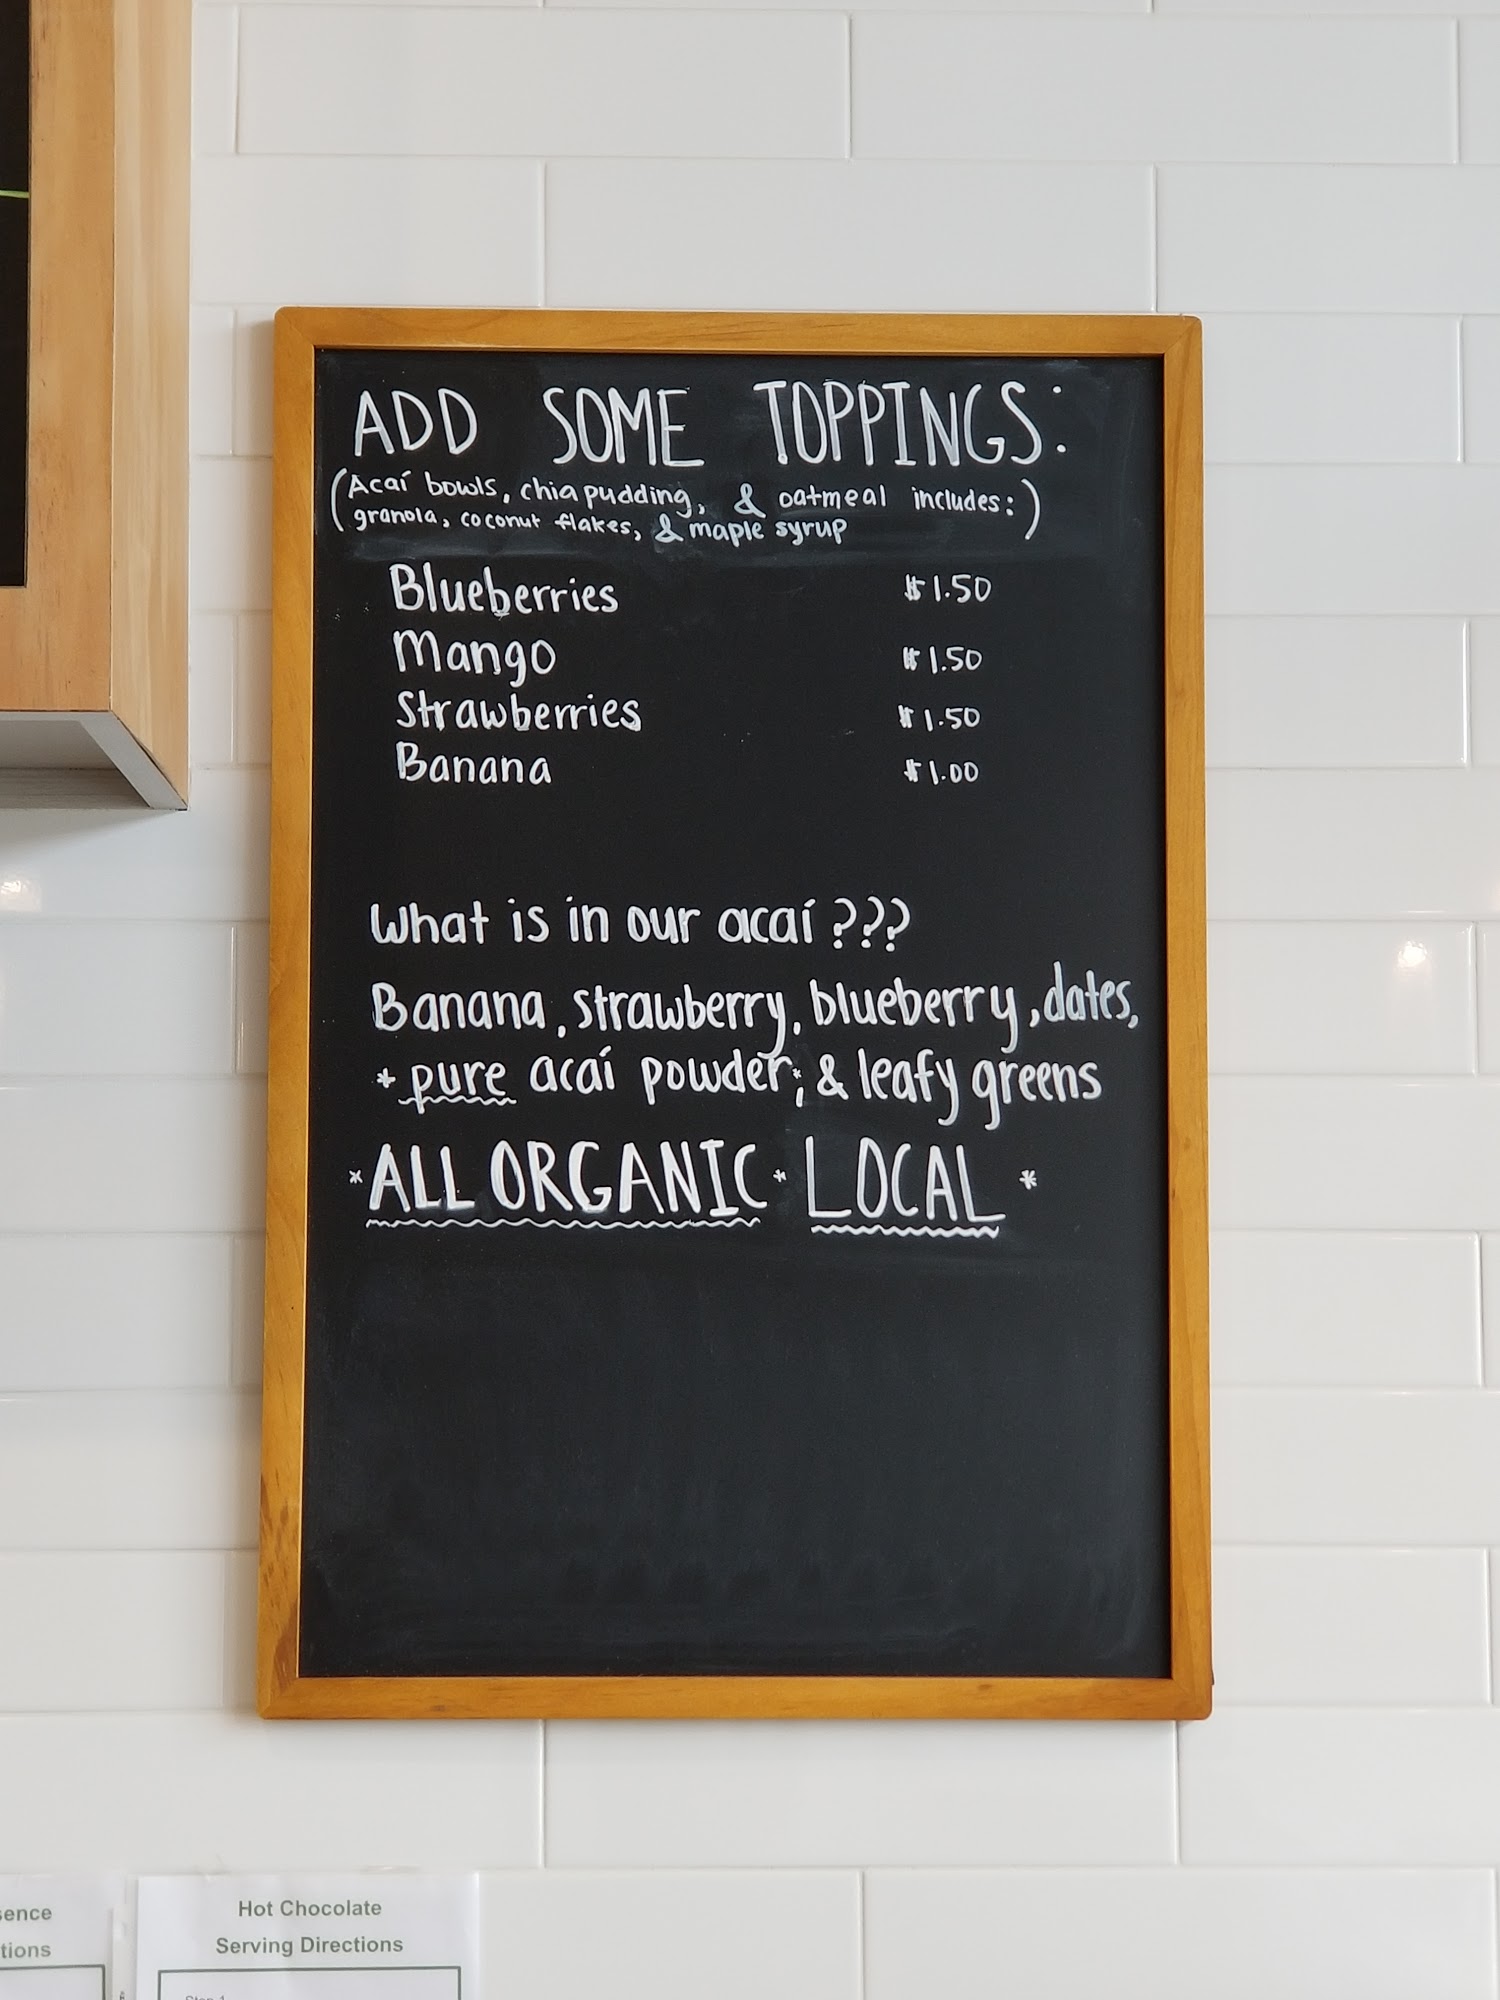 ADD SOME TOPPINGS:
(Acaí bowls, chia pudding, & oatmeal includes:
granola, coconut flakes, & maple syrup)
Blueberries $1.50
Mango $1.50
Strawberries $1.50
Banana $1.00
What is in our acaí???
Banana, strawberry, blueberry, dates,
* pure acaí powder*, & leafy greens
* ALL ORGANIC * LOCAL *
Hot Chocolate
Serving Directions